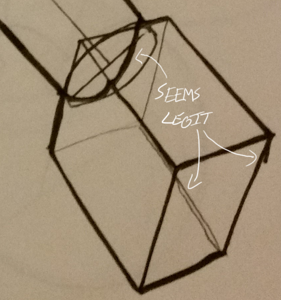 SEEMS
LEGIT